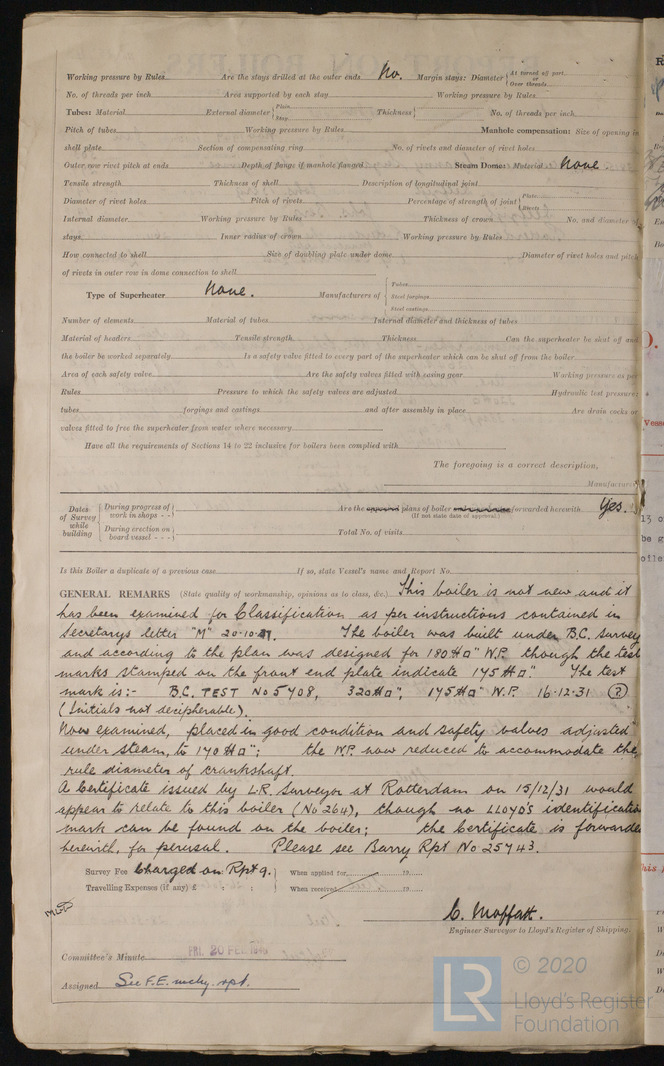 Working pressure by Rules Are the stays drilled at the outer ends No. Margin stays: Diameter { At turned off part. or Over threads
No. of threads per inch Area supported by each stay Working pressure by Rules
Tubes: Material External diameter { Plain Stay Thickness { No. of threads per inch
Pitch of tubes Working pressure by Rules Manhole compensation: Size of opening in
shell plate Section of compensating ring No. of rivets and diameter of rivet holes
Outer row rivet pitch at ends Depth of flange if manhole flanged Steam Dome: Material None
Tensile strength Thickness of shell Description of longitudinal joint
Diameter of rivet holes Pitch of rivets Percentage of strength of joint { Plate Rivets
Internal diameter Working pressure by Rules Thickness of crown No. and diameter of
stays Inner radius of crown Working pressure by Rules
How connected to shell Size of doubling plate under dome Diameter of rivet holes and pitch
of rivets in outer row in dome connection to shell
Type of Superheater None. Manufacturers of { Tubes Steel forgings Steel castings
Number of elements Material of tubes Internal diameter and thickness of tubes
Material of headers Tensile strength Thickness Can the superheater be shut off and
the boiler be worked separately Is a safety valve fitted to every part of the superheater which can be shut off from the boiler
Area of each safety valve Are the safety valves fitted with easing gear Working pressure as per
Rules Pressure to which the safety valves are adjusted Hydraulic test pressure:
tubes forgings and castings and after assembly in place Are drain cocks or
valves fitted to free the superheater from water where necessary
Have all the requirements of Sections 14 to 22 inclusive for boilers been complied with
The foregoing is a correct description,
Manufacturer
Dates of Survey while building { During progress of work in shops - - } Are the approved plans of boiler forwarded herewith Yes.
(If not state date of approval.)
{ During erection on board vessel - - - } Total No. of visits
Is this Boiler a duplicate of a previous case If so, state Vessel's name and Report No.
GENERAL REMARKS (State quality of workmanship, opinions as to class, &c.) This boiler is not new and it
has been examined for Classification as per instructions contained in
Secretarys letter "M" 20-10- The boiler was built under B.C. survey
and according to the plan was designed for 180 #□" W.P. though the test
marks stamped on the front end plate indicate 175 #□". The test
mark is:- B.C. TEST No 5708, 320#□", 175#□" W.P. 16-12-31 (?)
(Initials not decipherable).
Now examined, placed in good condition and safety valves adjusted
under steam, to 170 #□"; the W.P. now reduced to accommodate the
rule diameter of crankshaft.
A Certificate issued by L.R. Surveyor at Rotterdam on 15/12/31 would
appear to relate to this boiler (No 264), though no LLOYD'S identification
mark can be found on the boiler; the Certificate is forwarded
herewith, for perusal. Please see Barry Rpt No 25743.
Survey Fee Charged on Rpt 9. } When applied for, 19
Travelling Expenses (if any) £ : : } When received, 19
C. Moffatt.
Engineer Surveyor to Lloyd's Register of Shipping.
Committee's Minute FRI. 20 FEB
Assigned See F.E. mchy. rpt.
LR © 2020
Lloyd's Register
Foundation